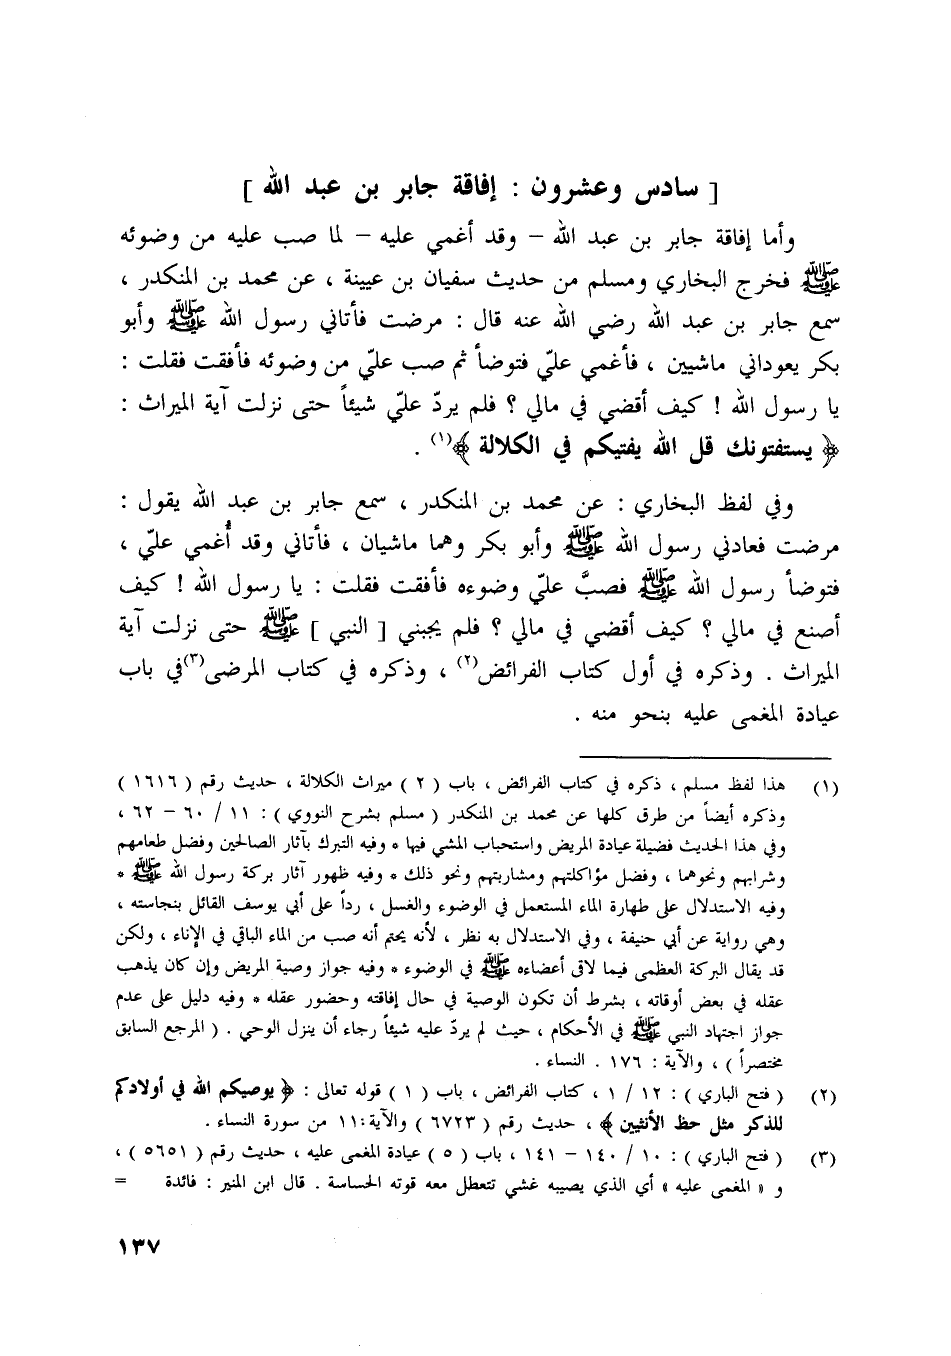 [ سادس وعشرون : إفاقة جابر بن عبد الله ]
وأما إفاقة جابر بن عبد الله – وقد أغمي عليه – لما صب عليه من وضوئه
ﷺ فخرج البخاري ومسلم من حديث سفيان بن عيينة ، عن محمد بن المنكدر ،
سمع جابر بن عبد الله رضي الله عنه قال : مرضت فأتاني رسول الله ﷺ وأبو
بكر يعوداني ماشيين ، فأغمي عليّ فتوضأ ثم صب عليّ من وضوئه فأفقت فقلت :
يا رسول الله ! كيف أقضي في مالي ؟ فلم يردّ عليّ شيئاً حتى نزلت آية الميراث :
﴿ يستفتونك قل الله يفتيكم في الكلالة ﴾(١) .
وفي لفظ البخاري : عن محمد بن المنكدر ، سمع جابر بن عبد الله يقول :
مرضت فعادني رسول الله ﷺ وأبو بكر وهما ماشيان ، فأتاني وقد أُغمي عليّ ،
فتوضأ رسول الله ﷺ فصبَّ عليّ وضوءه فأفقت فقلت : يا رسول الله ! كيف
أصنع في مالي ؟ كيف أقضي في مالي ؟ فلم يجبني [ النبي ] ﷺ حتى نزلت آية
الميراث . وذكره في أول كتاب الفرائض(٢) ، وذكره في كتاب المرضى(٣)في باب
عيادة المغمى عليه بنحو منه .
(١) هذا لفظ مسلم ، ذكره في كتاب الفرائض ، باب ( ٢ ) ميراث الكلالة ، حديث رقم ( ١٦١٦ )
وذكره أيضاً من طرق كلها عن محمد بن المنكدر ( مسلم بشرح النووي ) : ١١ / ٦٠ – ٦٢ ،
وفي هذا الحديث فضيلة عيادة المريض واستحباب المشي فيها * وفيه التبرك بآثار الصالحين وفضل طعامهم
وشرابهم ونحوهما ، وفضل مؤاكلتهم ومشاربتهم ونحو ذلك * وفيه ظهور آثار بركة رسول الله ﷺ *
وفيه الاستدلال على طهارة الماء المستعمل في الوضوء والغسل ، رداً على أبي يوسف القائل بنجاسته ،
وهي رواية عن أبي حنيفة ، وفي الاستدلال به نظر ، لأنه يحتم أنه صب من الماء الباقي في الإناء ، ولكن
قد يقال البركة العظمى فيما لاقى أعضاءه ﷺ في الوضوء * وفيه جواز وصية المريض وإن كان يذهب
عقله في بعض أوقاته ، بشرط أن تكون الوصية في حال إفاقته وحضور عقله * وفيه دليل على عدم
جواز اجتهاد النبي ﷺ في الأحكام ، حيث لم يردّ عليه شيئاً رجاء أن ينزل الوحي . ( المرجع السابق
مختصراً ) ، والآية : ١٧٦ . النساء .
(٢) ( فتح الباري ) : ١٢ / ١ ، كتاب الفرائض ، باب ( ١ ) قوله تعالى : ﴿ يوصيكم الله في أولادكم
للذكر مثل حظ الأنثيين ﴾ ، حديث رقم ( ٦٧٢٣ ) والآية:١١ من سورة النساء .
(٣) ( فتح الباري ) : ١٠ / ١٤٠ – ١٤١ ، باب ( ٥ ) عيادة المغمى عليه ، حديث رقم ( ٥٦٥١ ) ،
و « المغمى عليه » أي الذي يصيبه غشي تتعطل معه قوته الحساسة . قال ابن المنير : فائدة =
١٣٧